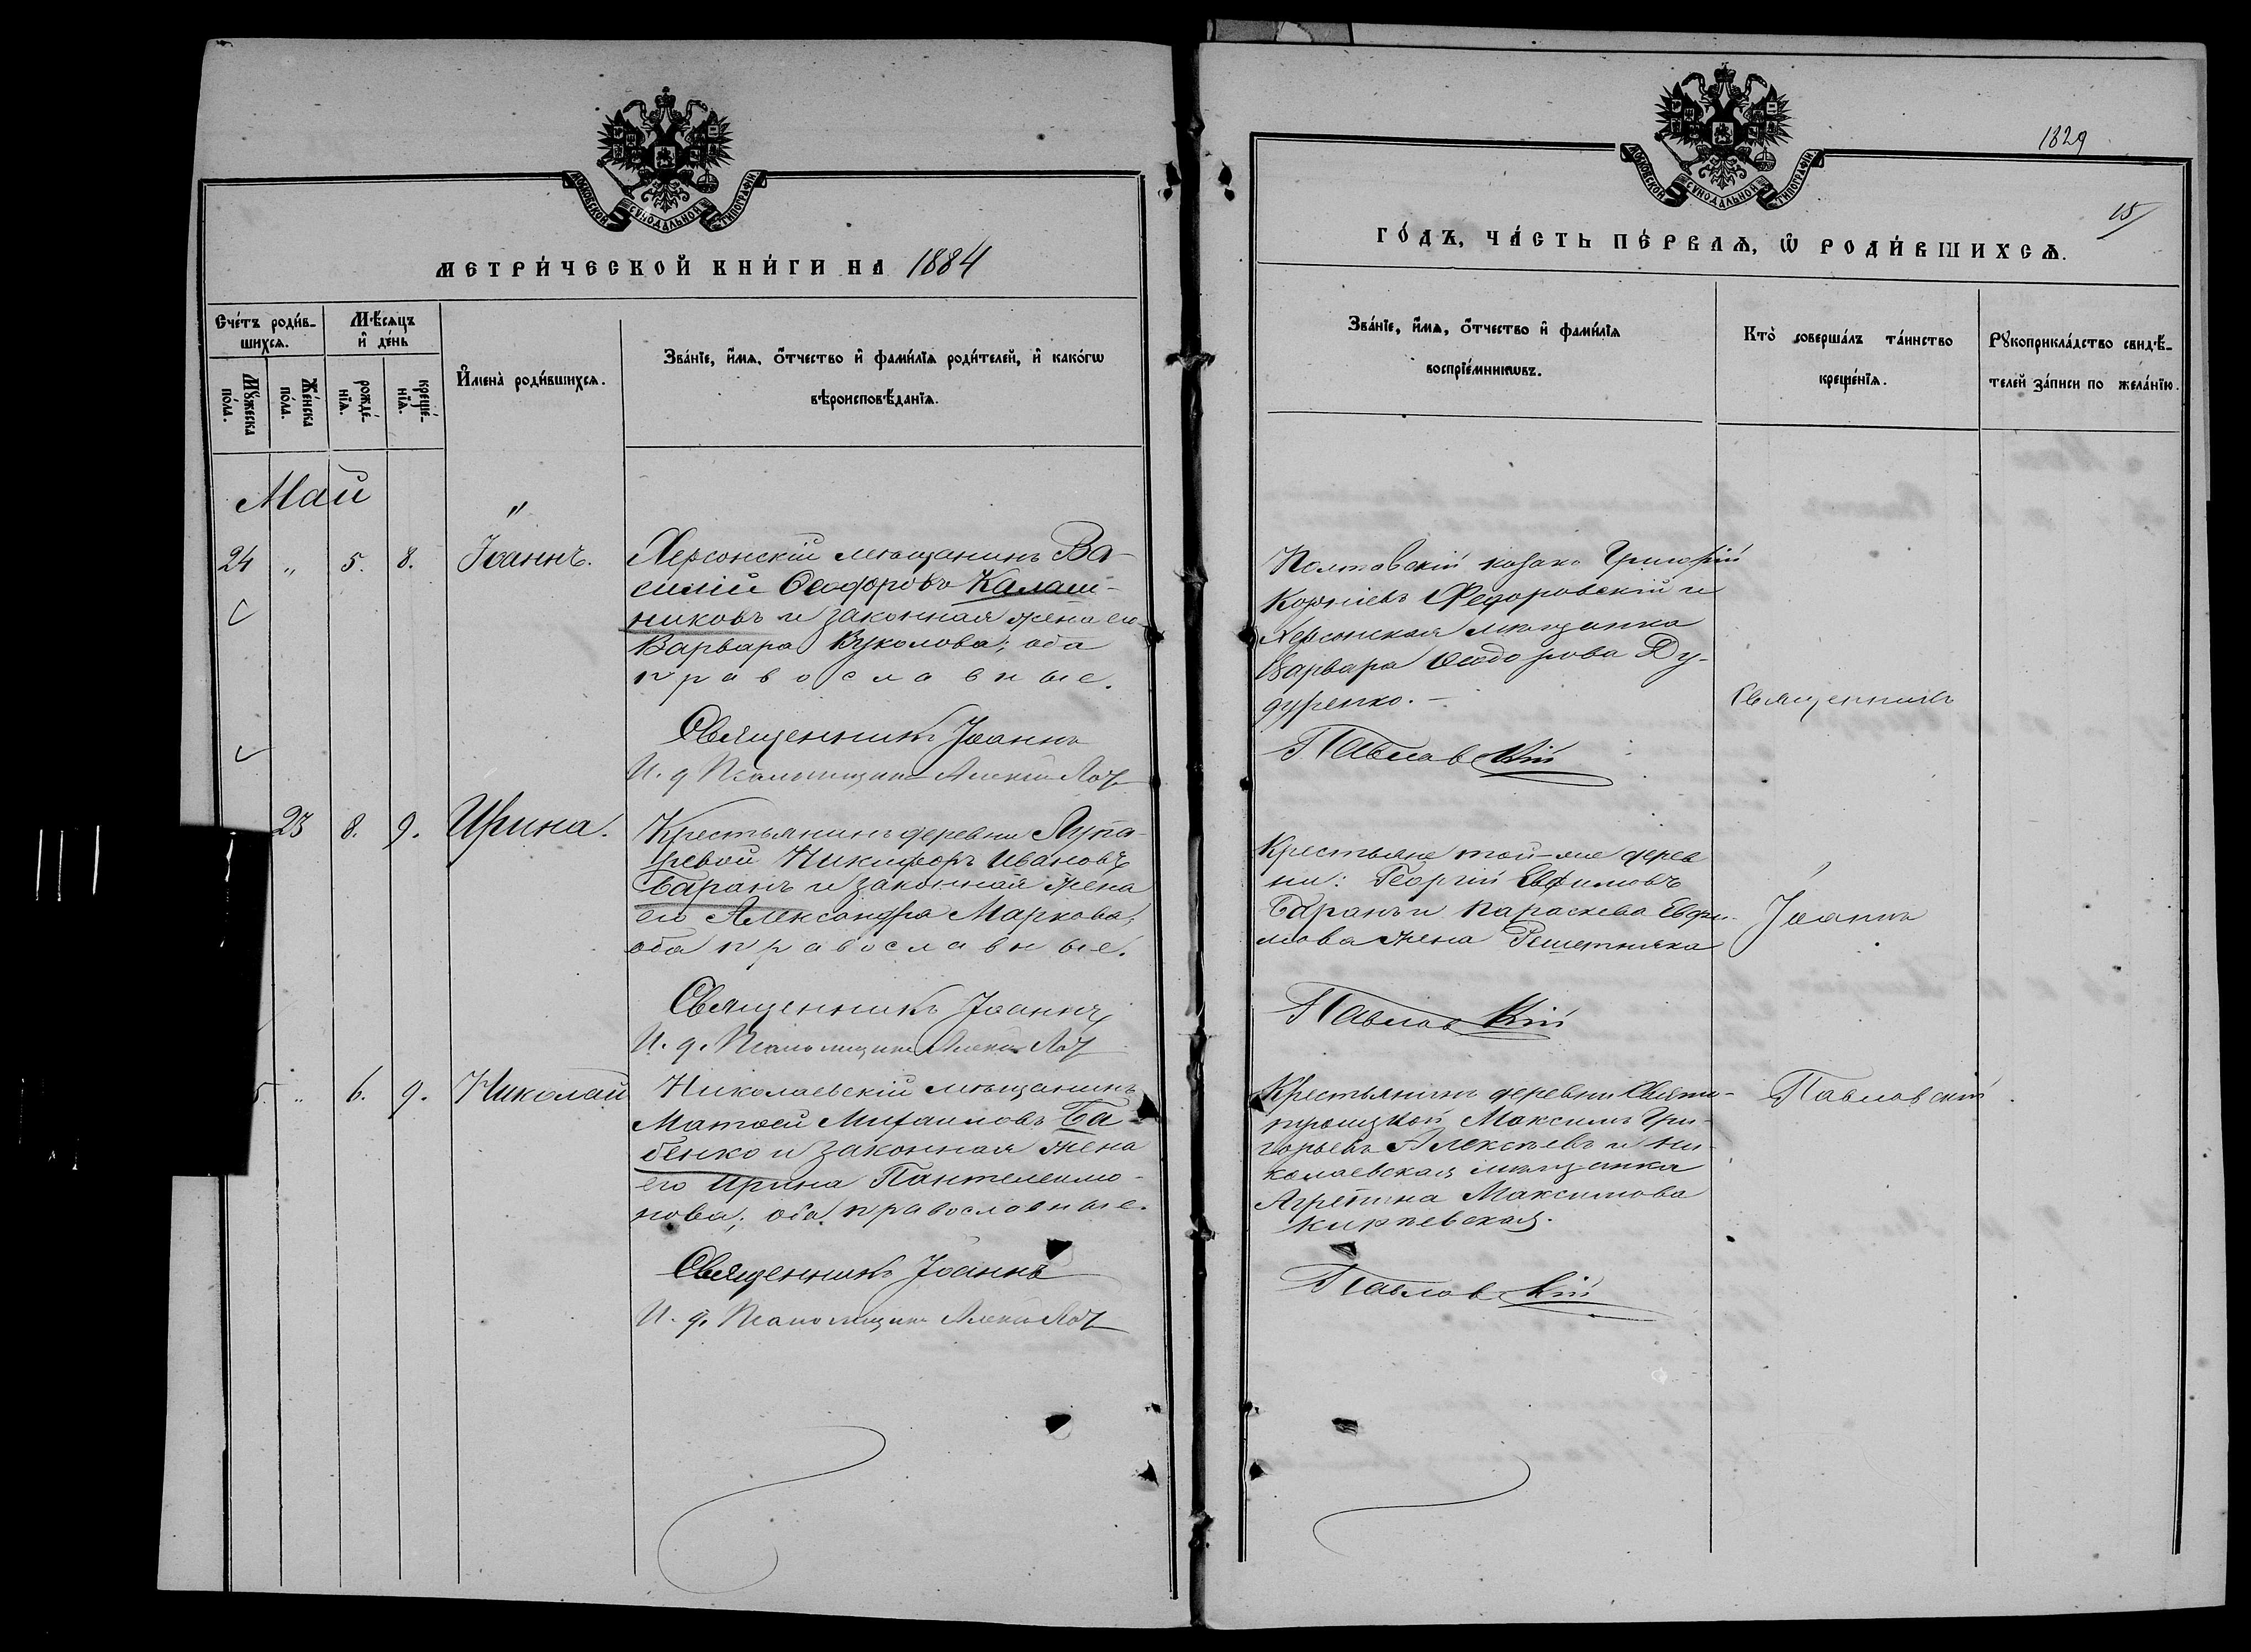 МОСКОВСКОЙ СѴНОДАЛЬНОЙ ТИПОГРАФІИ
МЕТРИ́ЧЕСКОЙ КНИ́ГИ НА 1884
Сче́тъ роди́в-
шихсѧ.
Мꙋ́жеска
по́ла.
Же́нска
по́ла.
Мѣ́сѧцъ
и҆ де́нь
рожде́-
нїѧ.
креще́-
нїѧ.
И҆мена̀ роди́вшихсѧ.
Зва́нїе, и҆́мѧ, ѻ҆́тчество и҆ фами́лїѧ роди́телей, и҆ како́гѡ
вѣроисповѣ́данїѧ.
Май
"
24 " 5. 8. Іоаннъ.
Херсонскій мѣщанинъ Ва-
силій Ѳеодоровъ Калаш-
никовъ и законная жена его
Варвара Вуколова; оба
православные.
Священникъ Іоаннъ
И. д. Псаломщика
23 8. 9. Ирина.
Крестьянинъ деревни Лупа-
ревой Никифоръ Ивановъ
Баранъ и законная жена
его Александра Маркова;
оба православные.
Священникъ Іоаннъ
И. д. Псаломщика
5. " 6. 9. Николай
Николаевскій мѣщанинъ
Матѳей Михаиловъ Ба-
бенко и законная жена
его Ирина Пантелеимо-
нова; оба православные.
Священникъ Іоаннъ
И. д. Псаломщика
МОСКОВСКОЙ СѴНОДАЛЬНОЙ ТИПОГРАФІИ
1829
15
ГО́ДЪ, ЧА́СТЬ ПЕ́РВАѦ, Ѽ РОДИ́ВШИХСѦ.
Зва́нїе, и҆́мѧ, ѻ҆́тчество и҆ фами́лїѧ
воспрїе́мникѡвъ.
Кто̀ соверша́лъ та́инство
креще́нїѧ.
Рꙋкоприкла́дство свидѣ́-
телей за́писи по жела́нїю.
Полтавскій козакъ Григорій
Корнѣевъ Ѳедоровскій и
Херсонская мѣщанка
Варвара Ѳеодорова Ду-
дуренко.
Павловскій
Крестьяне той-же дерев
ни: Георгій Евфимовъ
Баранъ и Параскева Евфи-
мова жена Решетняка
Павловскій
Крестьянинъ деревни Свято-
троицкой Максимъ Гри-
горьевъ Алексѣевъ и Ни-
колаевская мѣщанка
Агрепина Максимова
Кирѣевская.
Павловскій
Священникъ
Іоаннъ
Павловскій